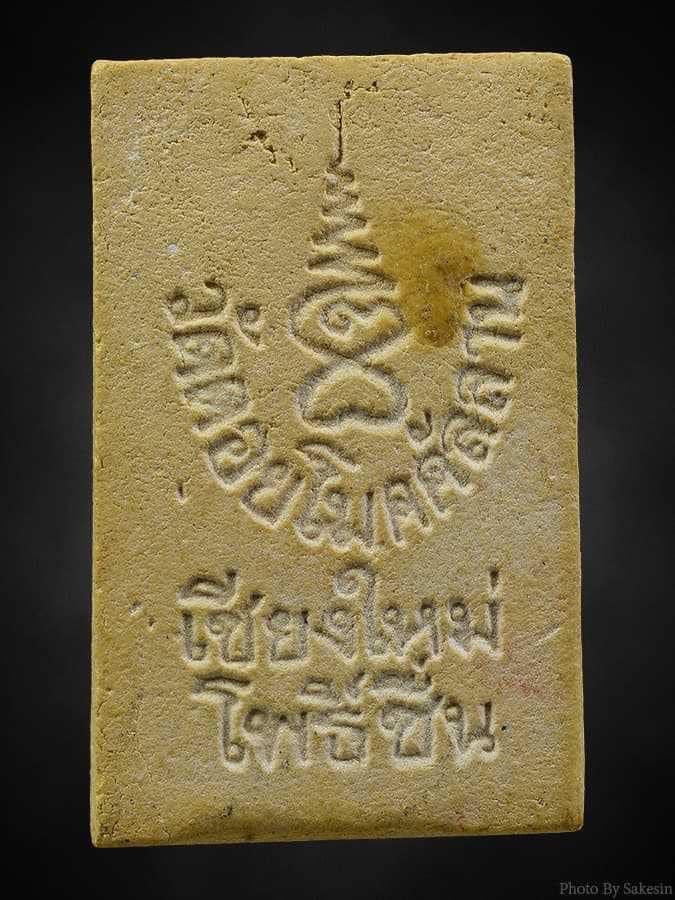 วัดดอยโมคคัลลาน
เชียงใหม่
โพธิ์ชื่น
Photo By Sakesin